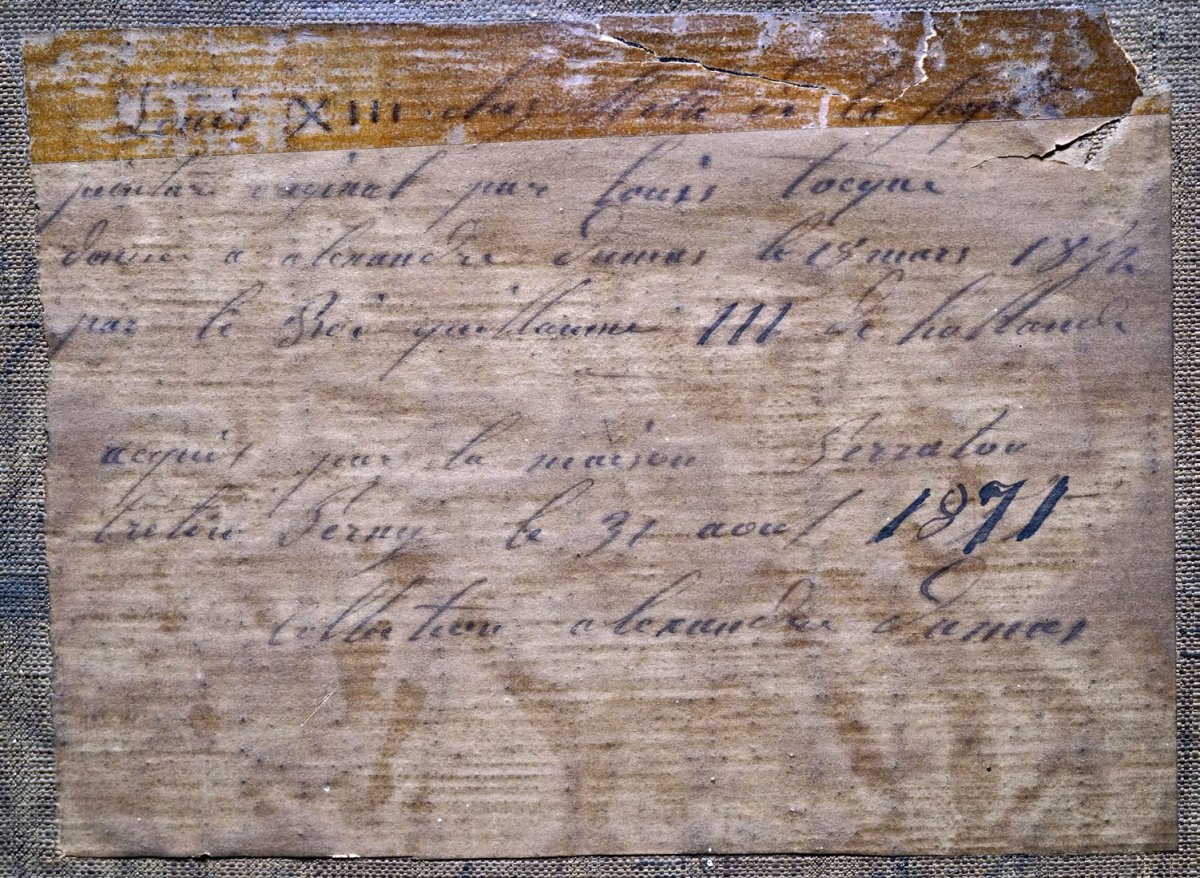 Louis XIII chez et la
peintre original par Louis Tocque
donné a alexandre Dumas le 18 mars
par le Roi guillaume III de hollande
acquis par la maison Ferraton
le 31 aout 1871
collection alexandre Dumas